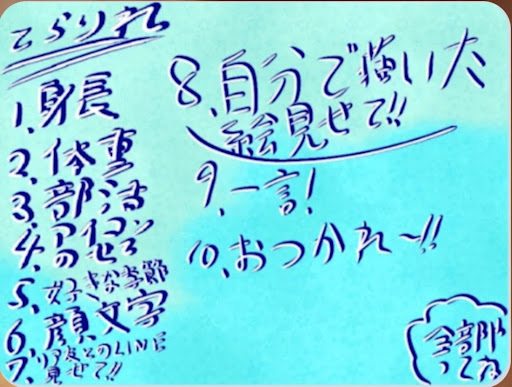 1.身長
2.体重
3.部活
4.
5.好きな季節
6.顔文字
7.とのLINE
見せて!!
8.自分で描いた
絵見せて!!
9.一言!
10.おつかれ〜!!
全部
ってな